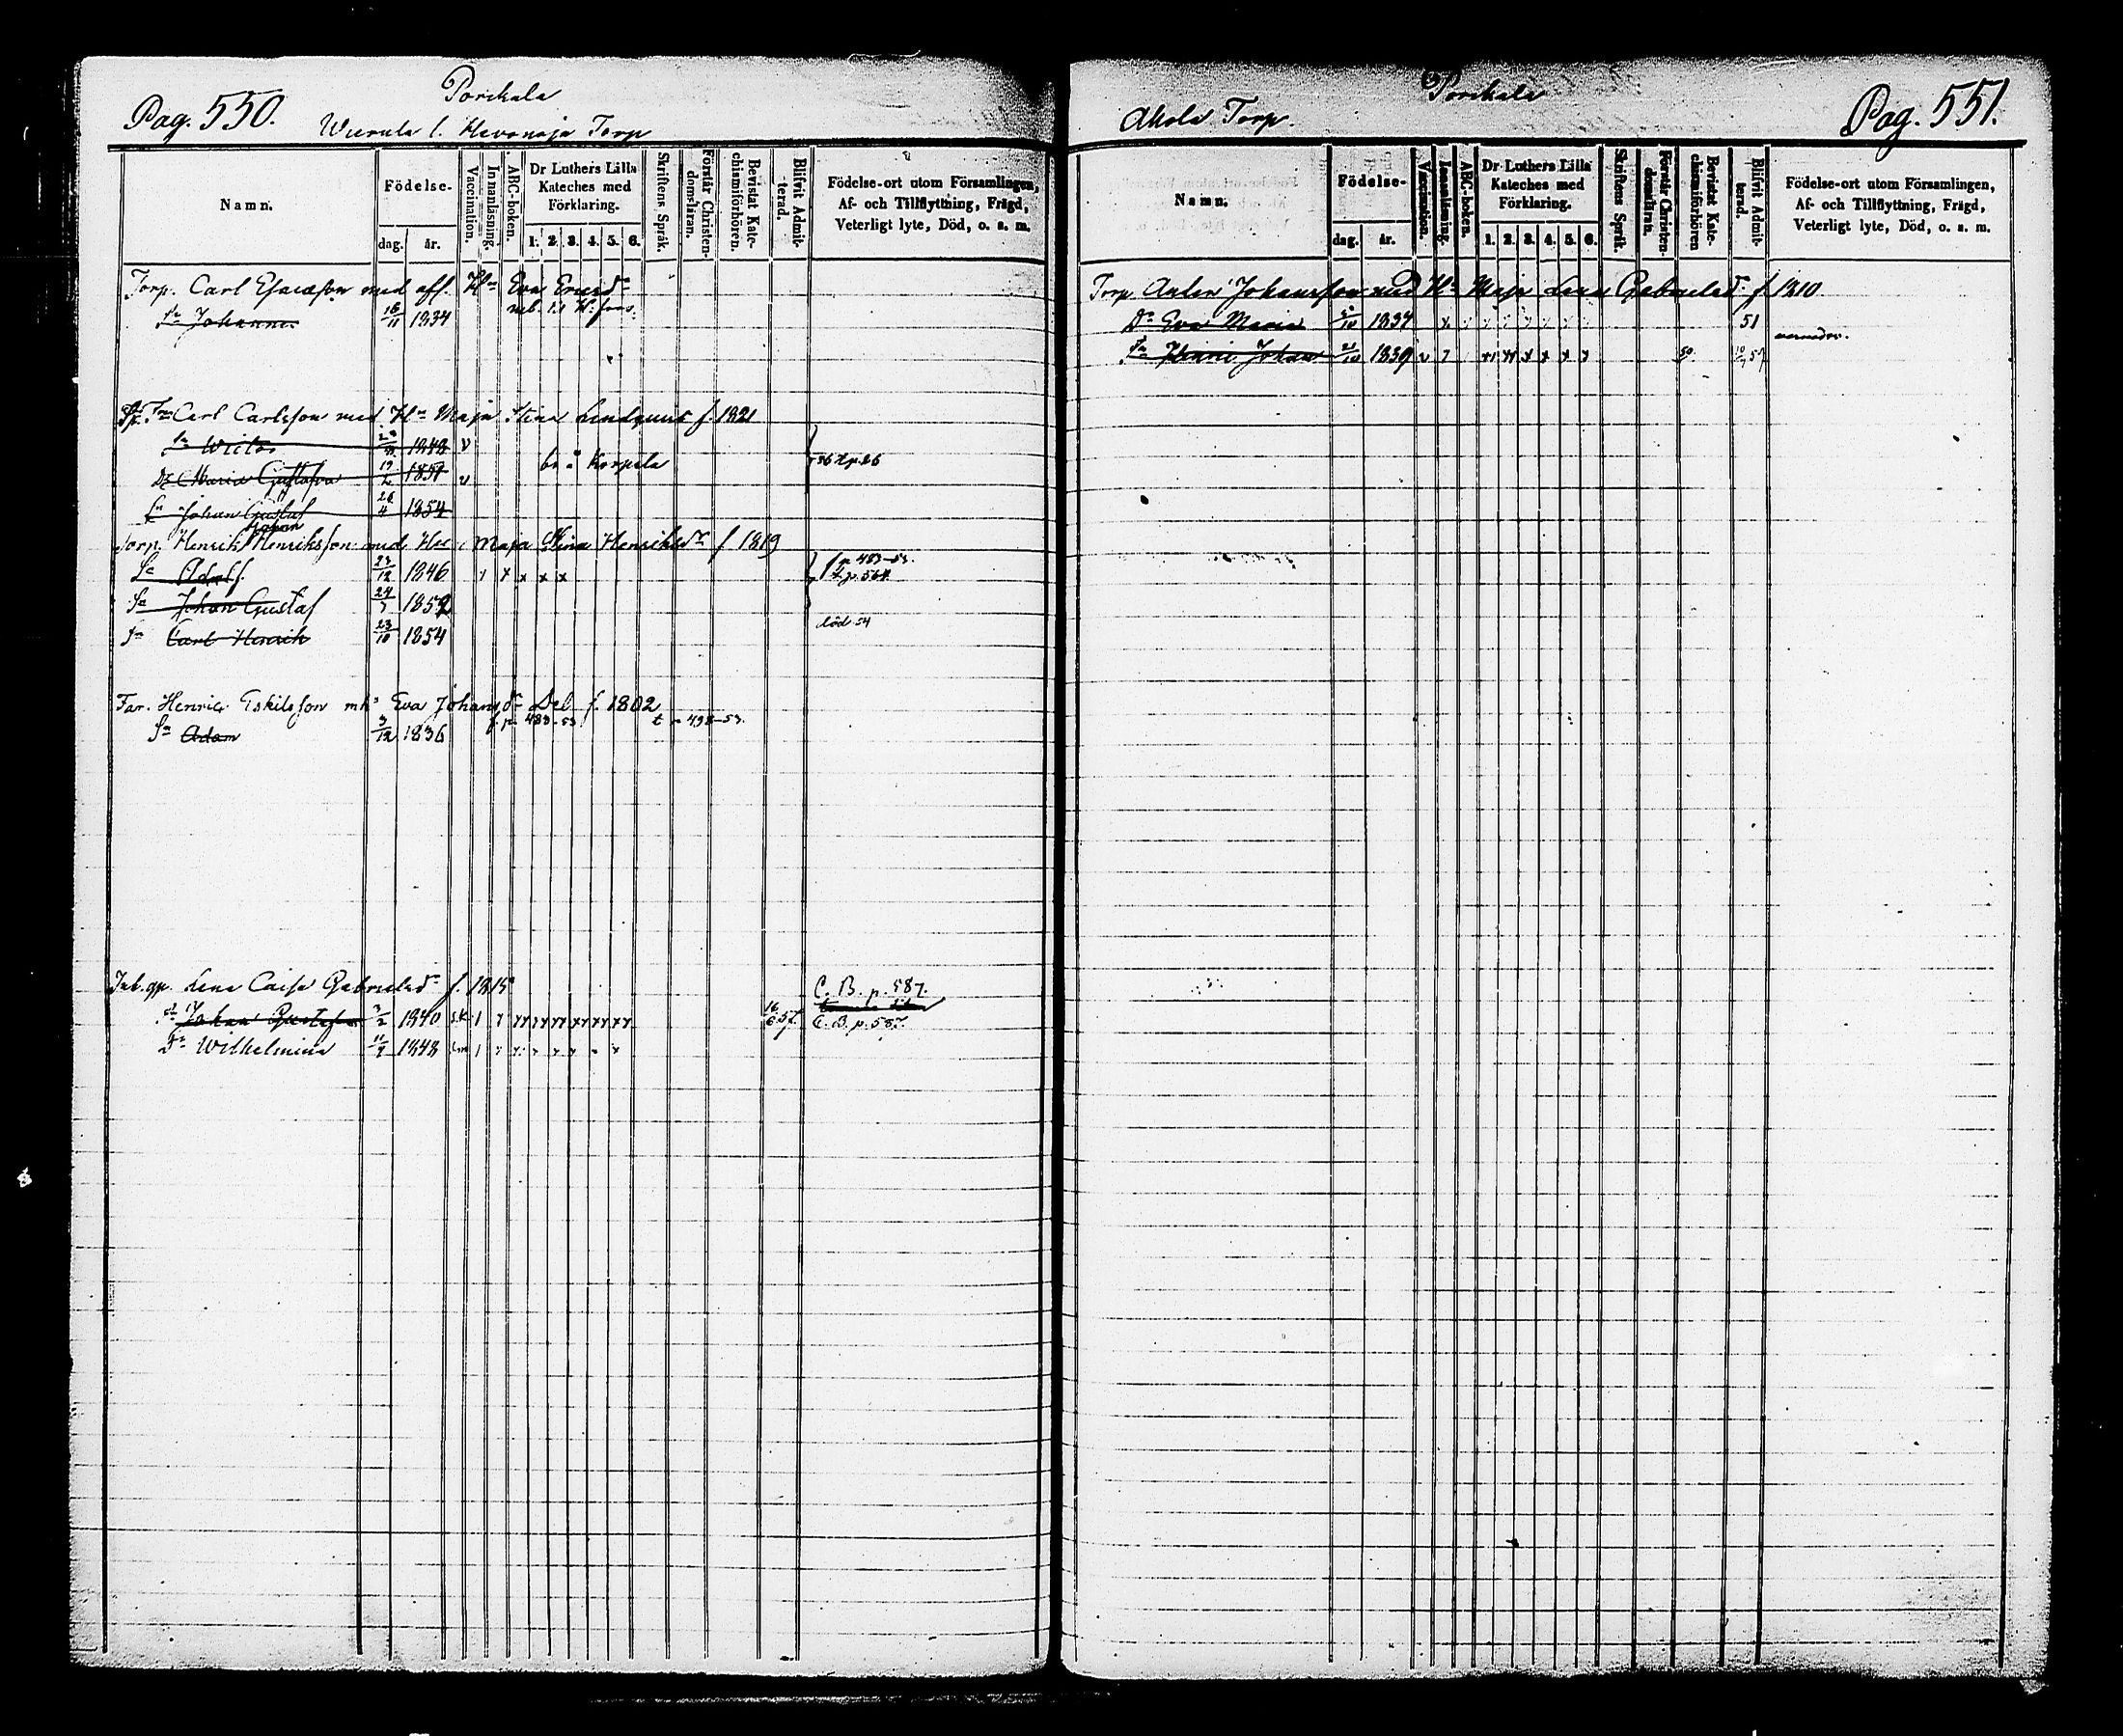 Pag. 550.
Porckala
Wierula l. Hevonoja Torp
Namn.
Födelse-
dag.
år.
Vaccination.
Innanläsning.
ABC-boken.
Dr Luthers Lilla
Kateches med
Förklaring.
1. 2. 3. 4. 5. 6.
Skriftens Språk.
Förstår Christen-
domsläran.
Bevistat Kate-
chismiförhören.
Blifvit Admit-
terad.
Födelse-ort utom Församlingen,
Af- och Tillflyttning, Frägd,
Veterligt lyte, Död, o. s. m.
Torp. Carl Esaiasson med aff. H Eva
Sn Johannes 16/11 1834
Carl Carlsson med Hu Maja Stina Lindqvist f. 1821
Sn Wictor 1848 v
Dr Maria Gustafva 19/2 1851 v
Korpela
56 t.p. 26
Sn Johan Gustaf 26/4 1854
Johan
Torp. Henrik Henriksson med Hu Maja Stina Henriksdr f 1819
Sn Adolf 23/12 1846 x x x x
f p 483-53.
t.p. 564
Sn Johan Gustaf 24/7 1852
Sn Carl Henrik 23/10 1854
död 54
Far. Henric Eskilsson mh Eva Johansdr Del f. 1802
f. p 483-53 t 498-53.
Sn Adam 3/12 1836
Inh. Lena Caisa Gabrielsdr f. 1815
C. B. p. 587.
Johan Gustaf 3/2 1840
16/6 57.
C. B. p. 587.
Dr Wilhelmina 11/9 1848
Porckala
Ahola Torp.
Pag. 551.
Namn.
Födelse-
dag.
år.
Vaccination.
Innanläsning.
ABC-boken.
Dr Luthers Lilla
Kateches med
Förklaring.
1. 2. 3. 4. 5. 6.
Skriftens Språk.
Förstår Christen-
domsläran.
Bevistat Kate-
chismiförhören
Blifvit Admit-
terad.
Födelse-ort utom Församlingen,
Af- och Tillflyttning, Frägd,
Veterligt lyte, Död, o. s. m.
Torp. Johansson med Hu Maja Lena Gabrielsdr f. 1810
Dr Eva Maria 1834 51
Sn Johan 21/10 1839 v 50